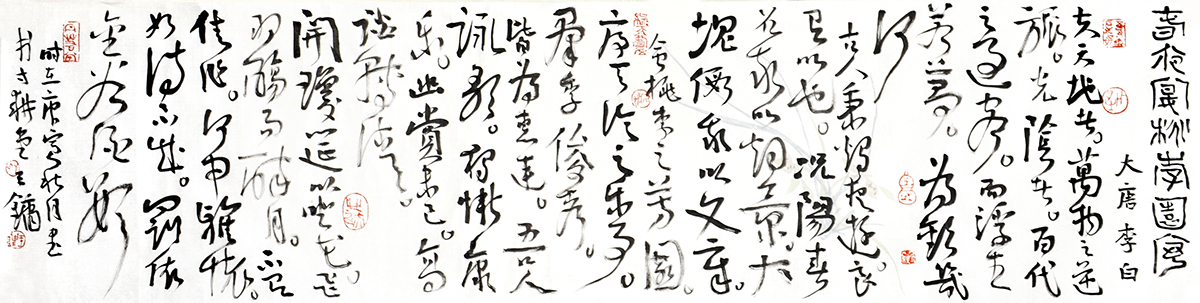 春夜宴桃李園
大唐李白
夫天地者。萬物之逆
旅。光陰者。百代
之過客。而浮生
若夢。為歡幾
何
古人秉燭夜遊。良
有以也。況陽春
召我以煙景。大
塊假我以文章。
會桃李之芳園。
序天倫之樂事。
群季俊秀。
皆為惠連。吾人
詠歌。獨慚康
樂。幽賞未已。高
談轉清。
開瓊筵以坐花。飛
羽觴而醉月。不有
佳作。何申雅懷。
如詩不成。罰依
金谷酒數
時在庚寅秋月書
耕堂王鏞